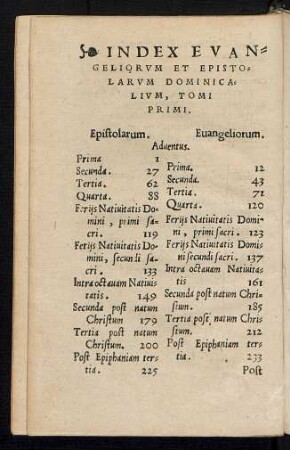 INDEX EVAN=
GELIORVM ET EPISTO=
LARVM DOMINICA=
LIVM, TOMI
PRIMI.
Epistolarum.
Aduentus.
Prima 1
Secunda. 27
Tertia. 62
Quarta. 88
Ferijs Natiuitatis Do=
mini, primi sa=
cri. 119
Ferijs Natiuitatis Do=
mini, secundi sa=
cri. 133
Intra octauam Natiui=
tatis. 149
Secunda post natum
Christum 179
Tertia post natum
Christum. 200
Post Epiphaniam ter=
tia. 225
Euangeliorum.
Prima. 12
Secunda. 43
Tertia. 71
Quarta. 120
Ferijs Natiuitatis Domi=
ni, primi sacri. 123
Ferijs Natiuitatis Domi=
ni secundi sacri. 137
Intra octauam Natiuita=
tis 161
Secunda post natum Chri=
stum. 185
Tertia post natum Chris
stum. 212
Post Epiphaniam ter=
tia. 233
Post